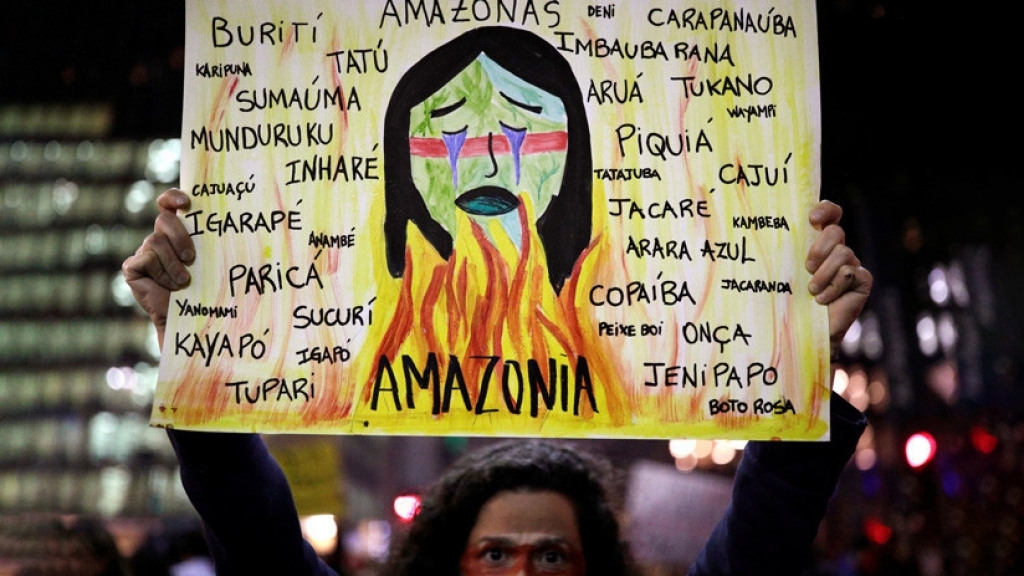 AMAZONAS
DENI
CARAPANAÚBA
BURITÍ
IMBAUBARANA
TATÚ
KARIPUNA
ARUÁ
TUKANO
SUMAÚMA
WAYAMPI
MUNDURUKU
PIQUIÁ
INHARÉ
TATAJUBA
CAJUÍ
CAJUAÇÚ
JACARÉ
IGARAPÉ
KAMBEBA
ANAMBÉ
ARARA AZUL
PARICÁ
COPAÍBA
JACARANDA
YANOMAMI
SUCURÍ
PEIXE BOI
ONÇA
KAYAPÓ
IGAPÓ
AMAZONIA
JENIPAPO
TUPARI
BOTO ROSA